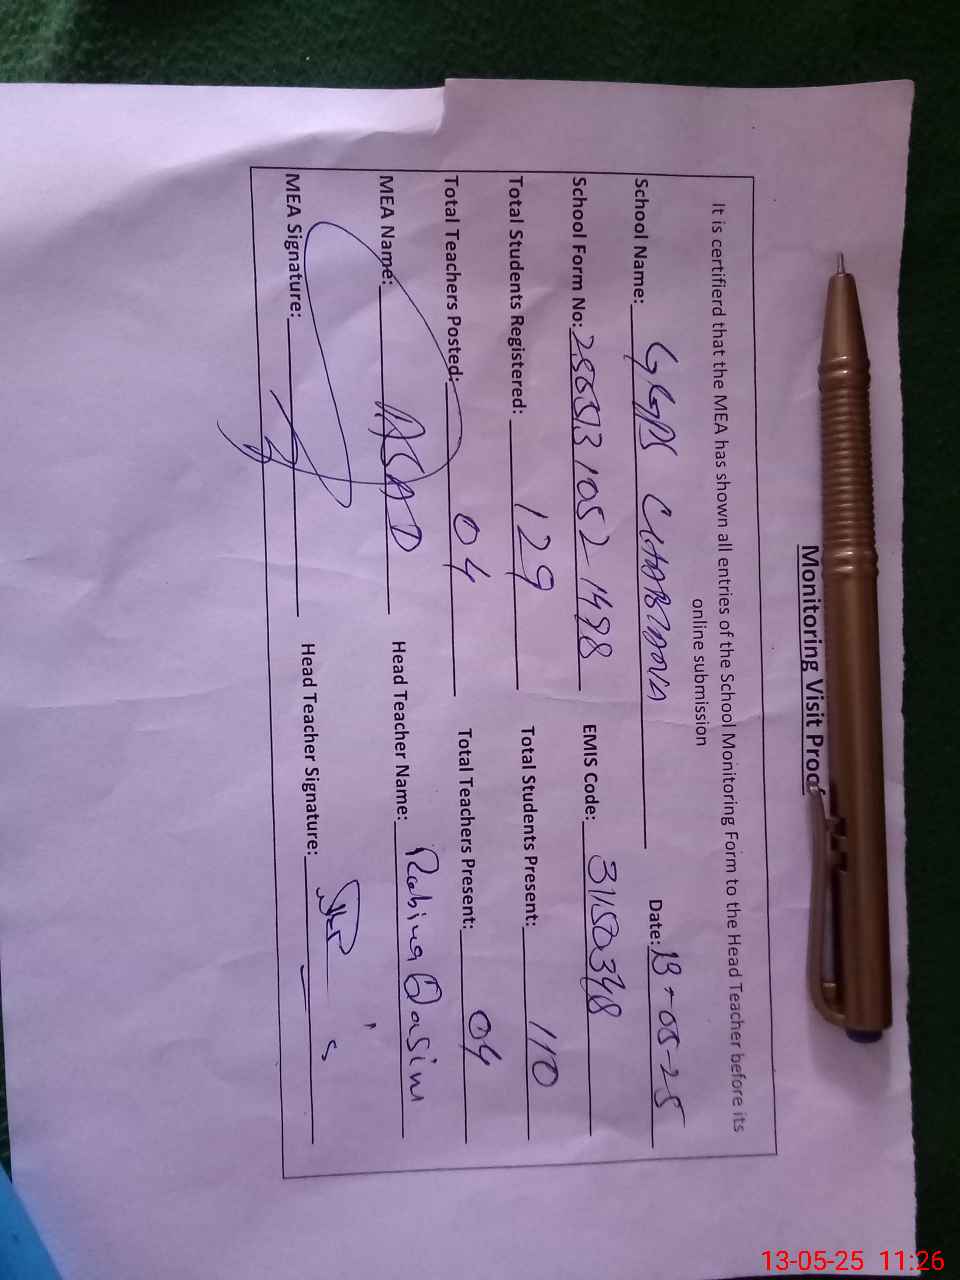 Monitoring Visit Proof
It is certifierd that the MEA has shown all entries of the School Monitoring Form to the Head Teacher before its
online submission
School Name: GGPS Date: 13-05-25
School Form No: EMIS Code: 31150348
Total Students Registered: 129 Total Students Present: 110
Total Teachers Posted: 04 Total Teachers Present: 04
MEA Name: ASAD Head Teacher Name: Robina Qasim
MEA Signature: Head Teacher Signature:
13-05-25 11:26